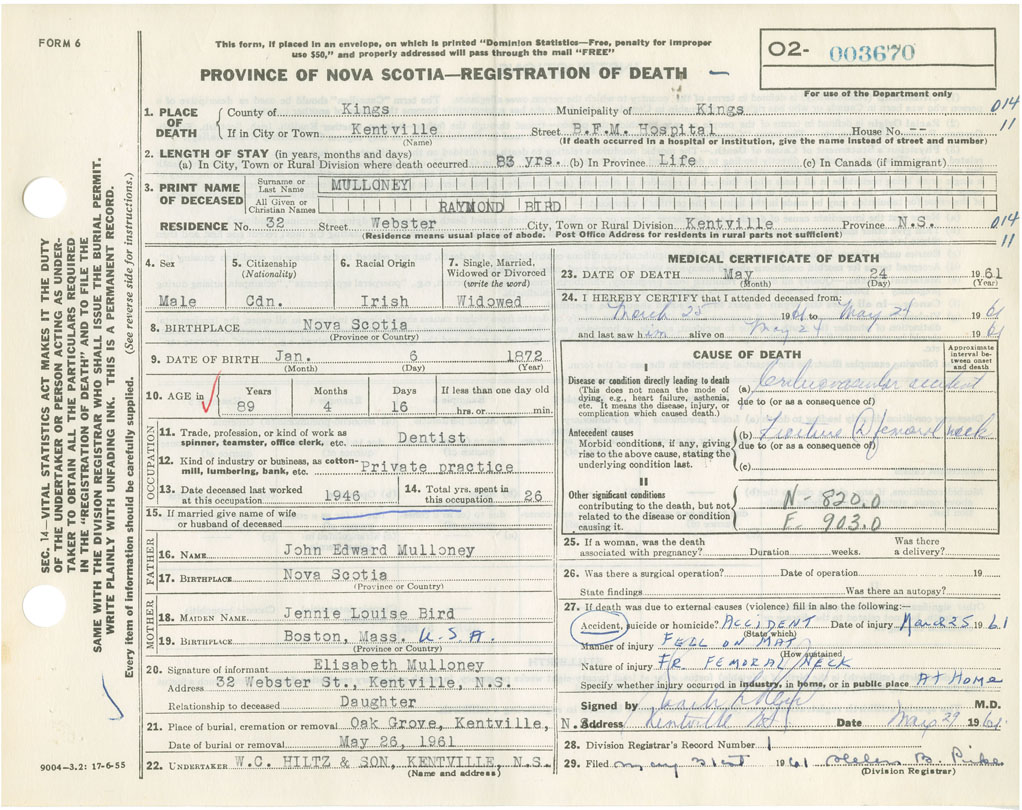 FORM 6
This form, if placed in an envelope, on which is printed "Dominion Statistics—Free, penalty for improper
use $50," and properly addressed will pass through the mail "FREE"
PROVINCE OF NOVA SCOTIA—REGISTRATION OF DEATH
O2- 003670
For use of the Department only
1. PLACE OF DEATH
County of Kings Municipality of Kings 014
If in City or Town Kentville Street B.F.M. Hospital House No. -- 11
(Name) (If death occurred in a hospital or institution, give the name instead of street and number)
2. LENGTH OF STAY (in years, months and days)
(a) In City, Town or Rural Division where death occurred 83 yrs. (b) In Province Life (c) In Canada (if immigrant)
3. PRINT NAME OF DECEASED
Surname or Last Name MULLONEY
All Given or Christian Names RAYMOND BIRD
RESIDENCE No. 32 Street Webster City, Town or Rural Division Kentville Province N.S. 014
(Residence means usual place of abode. Post Office Address for residents in rural parts not sufficient) 11
4. Sex
Male
5. Citizenship
(Nationality)
Cdn.
6. Racial Origin
Irish
7. Single, Married,
Widowed or Divorced
(write the word)
Widowed
8. BIRTHPLACE Nova Scotia
(Province or Country)
9. DATE OF BIRTH Jan. 6 1872
(Month) (Day) (Year)
10. AGE in
Years Months Days If less than one day old
89 4 16 hrs. or min.
OCCUPATION
11. Trade, profession, or kind of work as
spinner, teamster, office clerk, etc. Dentist
12. Kind of industry or business, as cotton-
mill, lumbering, bank, etc. Private practice
13. Date deceased last worked
at this occupation 1946
14. Total yrs. spent in
this occupation 26
15. If married give name of wife
or husband of deceased
FATHER
16. NAME John Edward Mulloney
17. BIRTHPLACE Nova Scotia
(Province or Country)
MOTHER
18. MAIDEN NAME Jennie Louise Bird
19. BIRTHPLACE Boston, Mass. U.S.A.
(Province or Country)
20. Signature of informant Elisabeth Mulloney
Address 32 Webster St., Kentville, N.S.
Relationship to deceased Daughter
21. Place of burial, cremation or removal Oak Grove, Kentville, N.S.
Date of burial or removal May 26, 1961
22. UNDERTAKER W.C. HILTZ & SON, KENTVILLE, N.S.
(Name and address)
MEDICAL CERTIFICATE OF DEATH
23. DATE OF DEATH May 24 1961
(Month) (Day) (Year)
24. I HEREBY CERTIFY that I attended deceased from:
March 25 1961 to May 24 1961
and last saw him alive on May 24 1961
CAUSE OF DEATH
Approximate interval between onset and death
I
Disease or condition directly leading to death
(This does not mean the mode of
dying, e.g., heart failure, asthenia,
etc. It means the disease, injury, or
complication which caused death.)
(a) Cerebrovascular accident
due to (or as a consequence of)
Antecedent causes
Morbid conditions, if any, giving
rise to the above cause, stating the
underlying condition last.
(b) Fracture Femoral neck
due to (or as a consequence of)
(c)
II
Other significant conditions
contributing to the death, but not
related to the disease or condition
causing it.
N-820.0
E. 903.0
25. If a woman, was the death
associated with pregnancy? Duration weeks. Was there
a delivery?
26. Was there a surgical operation? Date of operation 19
State findings Was there an autopsy?
27. If death was due to external causes (violence) fill in also the following:—
Accident, suicide or homicide? ACCIDENT Date of injury March 25 1961
(State which)
Manner of injury FELL ON MAT
(How sustained)
Nature of injury FR FEMORAL NECK
Specify whether injury occurred in industry, in home, or in public place AT HOME
Signed by M.D.
Address Kentville Date May 29 1961
28. Division Registrar's Record Number 1
29. Filed May 31st 1961 Helen B.
(Division Registrar)
SEC. 14—VITAL STATISTICS ACT MAKES IT THE DUTY
OF THE UNDERTAKER OR PERSON ACTING AS UNDER-
TAKER TO OBTAIN ALL THE PARTICULARS REQUIRED
IN THE "REGISTRATION OF DEATH" AND TO FILE THE
SAME WITH THE DIVISION REGISTRAR WHO SHALL ISSUE THE BURIAL PERMIT.
WRITE PLAINLY WITH UNFADING INK. THIS IS A PERMANENT RECORD.
Every item of information should be carefully supplied. (See reverse side for instructions.)
9004-3.2: 17-6-55